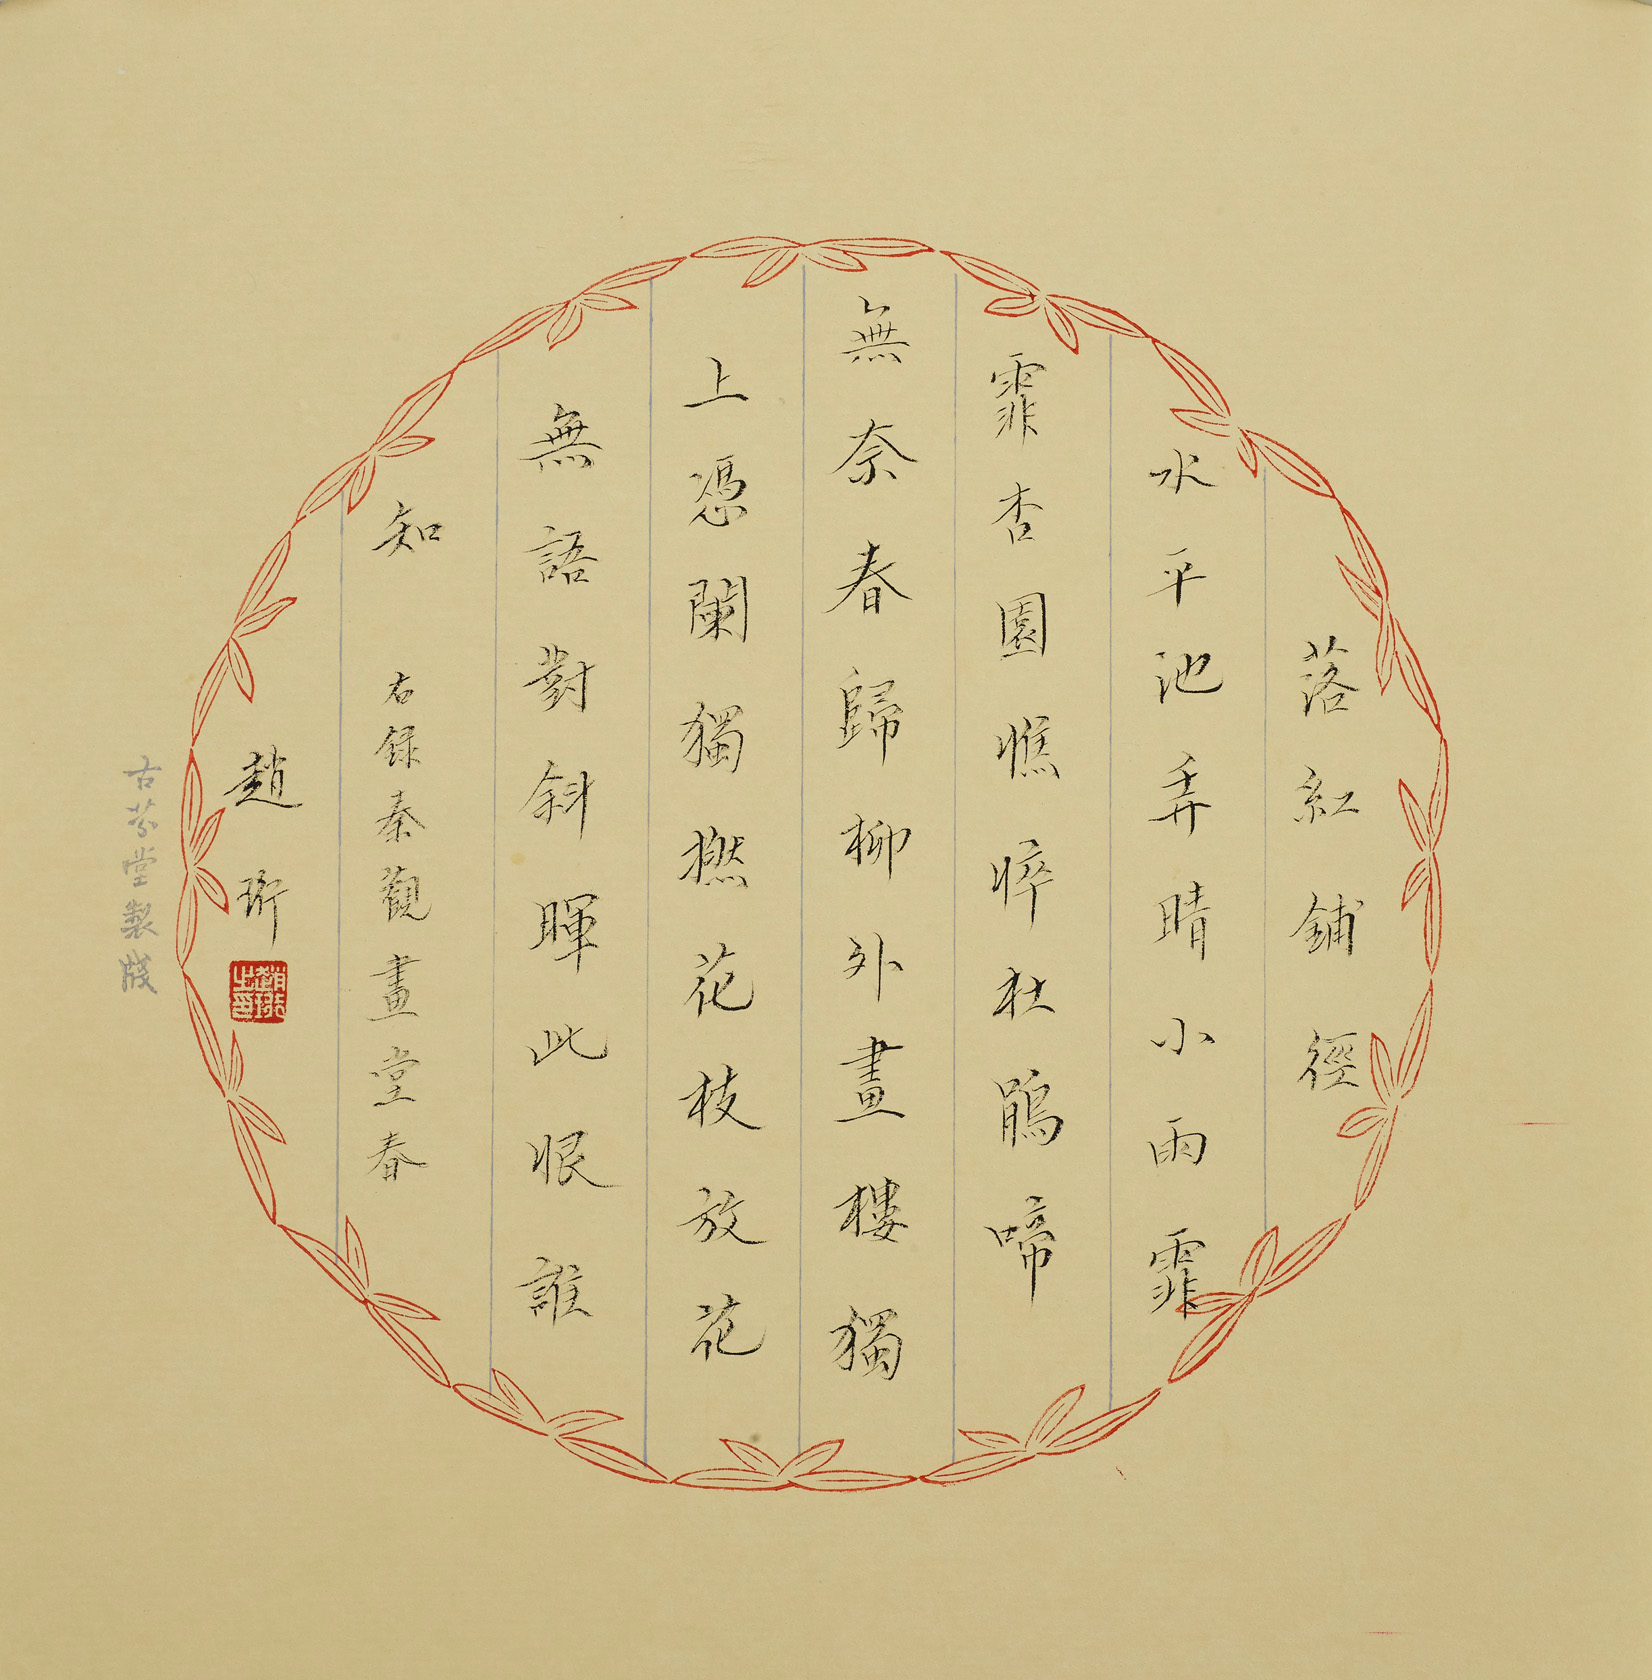 落紅鋪徑
水平池弄晴小雨霏
霏杏園憔悴杜鵑啼
無奈春歸柳外畫樓獨
上憑闌獨撚花枝放花
無語對斜暉此恨誰
知
右録秦觀畫堂春
趙珩
趙珩之印
古芬堂製牋